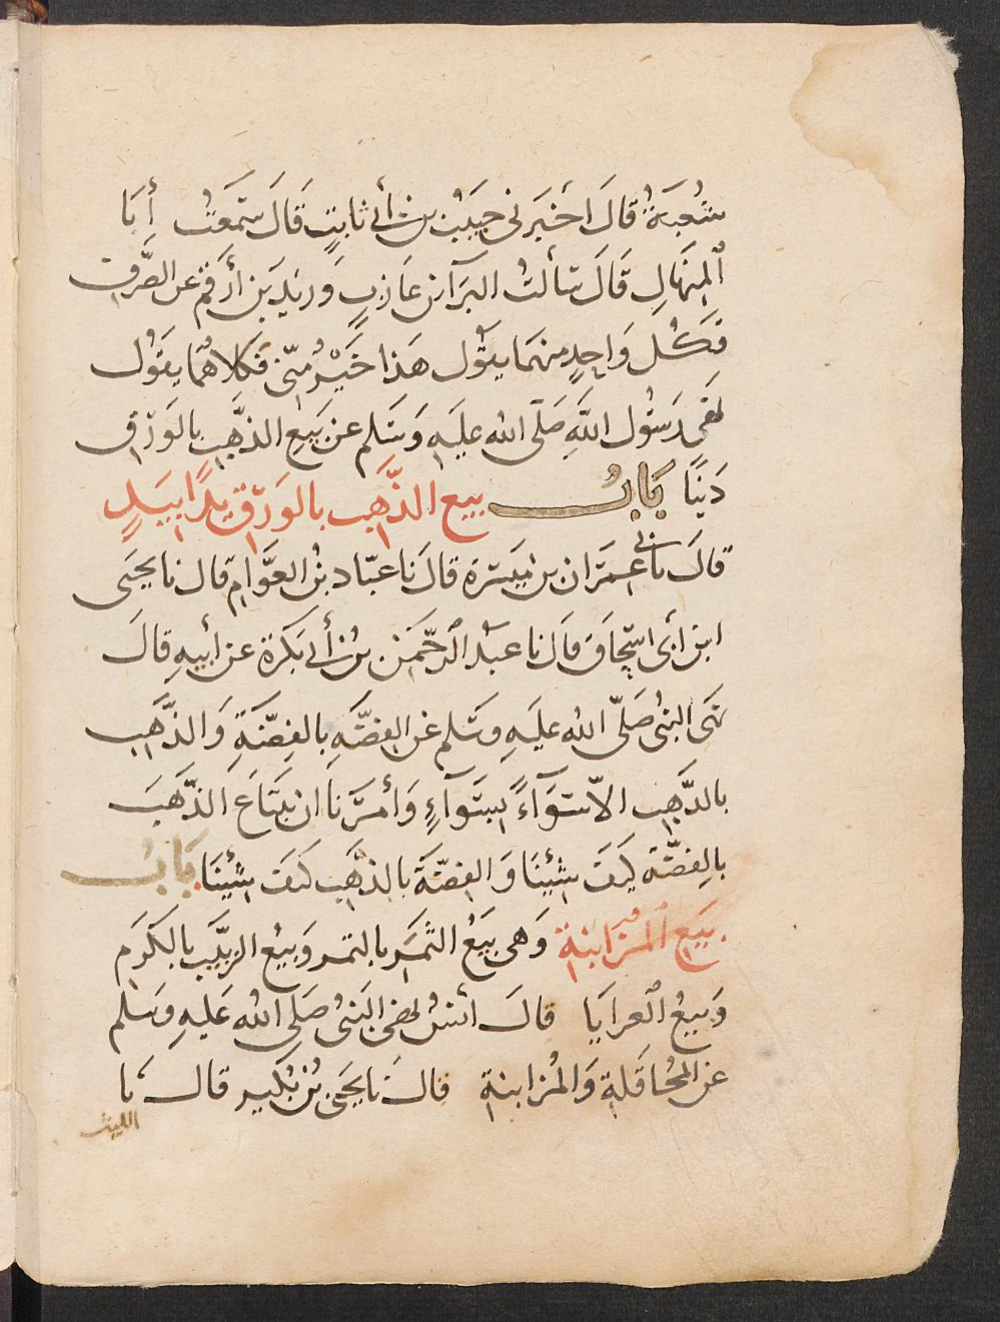 شُعبَةُ قالَ أخبَرَنى حبيبُ بن أبى ثابتٍ قَالَ سَمَعتُ أبَا
المِنهَالِ قَالَ سَألتُ البَرَآءَ بن عَازبٍ وَزيَد بَن أرَقمَ عَن الصَّرف
فَكُل وَاحِدٍ منهمَا يقُول هَذا خَيْرٌ مِنّى فكلاهُمَا يقوُل
نهَى رَسُول اللهِ صَلّى الله عليَه وَسَلم عن بَيعِ الذَّهَبِ بالوَرِق
دَينًا بَابُ بيع الذَّهَب بالوَرِق يدًا بيَدٍ
قالَ نا عمرَان بن مَيسَرة قالَ نا عبّاد بنُ العَوَّامِ قال نا يحيَى
ابن أبى اسحَاقَ قالَ نا عبْد الرحّمَن بنُ أبى بَكرَة عن أبيهِ قالَ
نهَى النبىُ صَلّى الله عليَهِ وسَلم عَن الفضَّةِ بالفِضَّةِ وَالذَّهَب
بالذَّهَب الاّ سَوَآءً بسَوَآءٍ وَأمَرَنَا ان نبتَاعَ الذَّهَبَ
بالِفضَّة كيَفَ شئِنَا وَالفضّةَ بالذهَب كيَفَ شئِنَا بَابُ
بيَع المُزَابنة وَهى بيَعُ الثمَر بالتمر وَبيعُ الزبيَب بالكرَم
وَبيعُ العرايَا قالَ أنسُ نهى النبىُ صَلى الله عَليهِ وسَلم
عن المُحَاقَلةِ وَالمُزابنةِ قالَ نا يحيَى بنُ بُكير قال نا
الليث